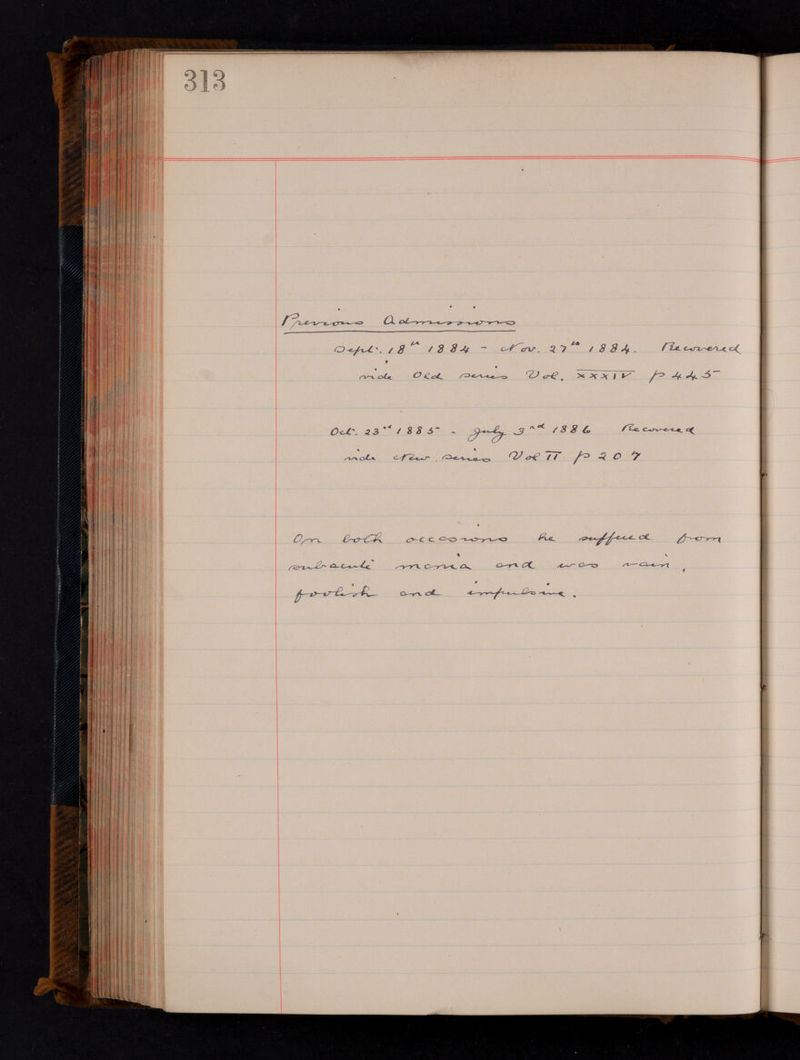 313
Previous Admissions
Sept. 18th 1884 - Nov. 27th 1884. Recovered
vide Old series Vol. XXXIV p 445
Oct. 23rd 1885 - July 3rd 1886 Recovered
vide New series Vol II p 207
On both occasions he suffered from
subacute mania and was vain,
foolish and impulsive.